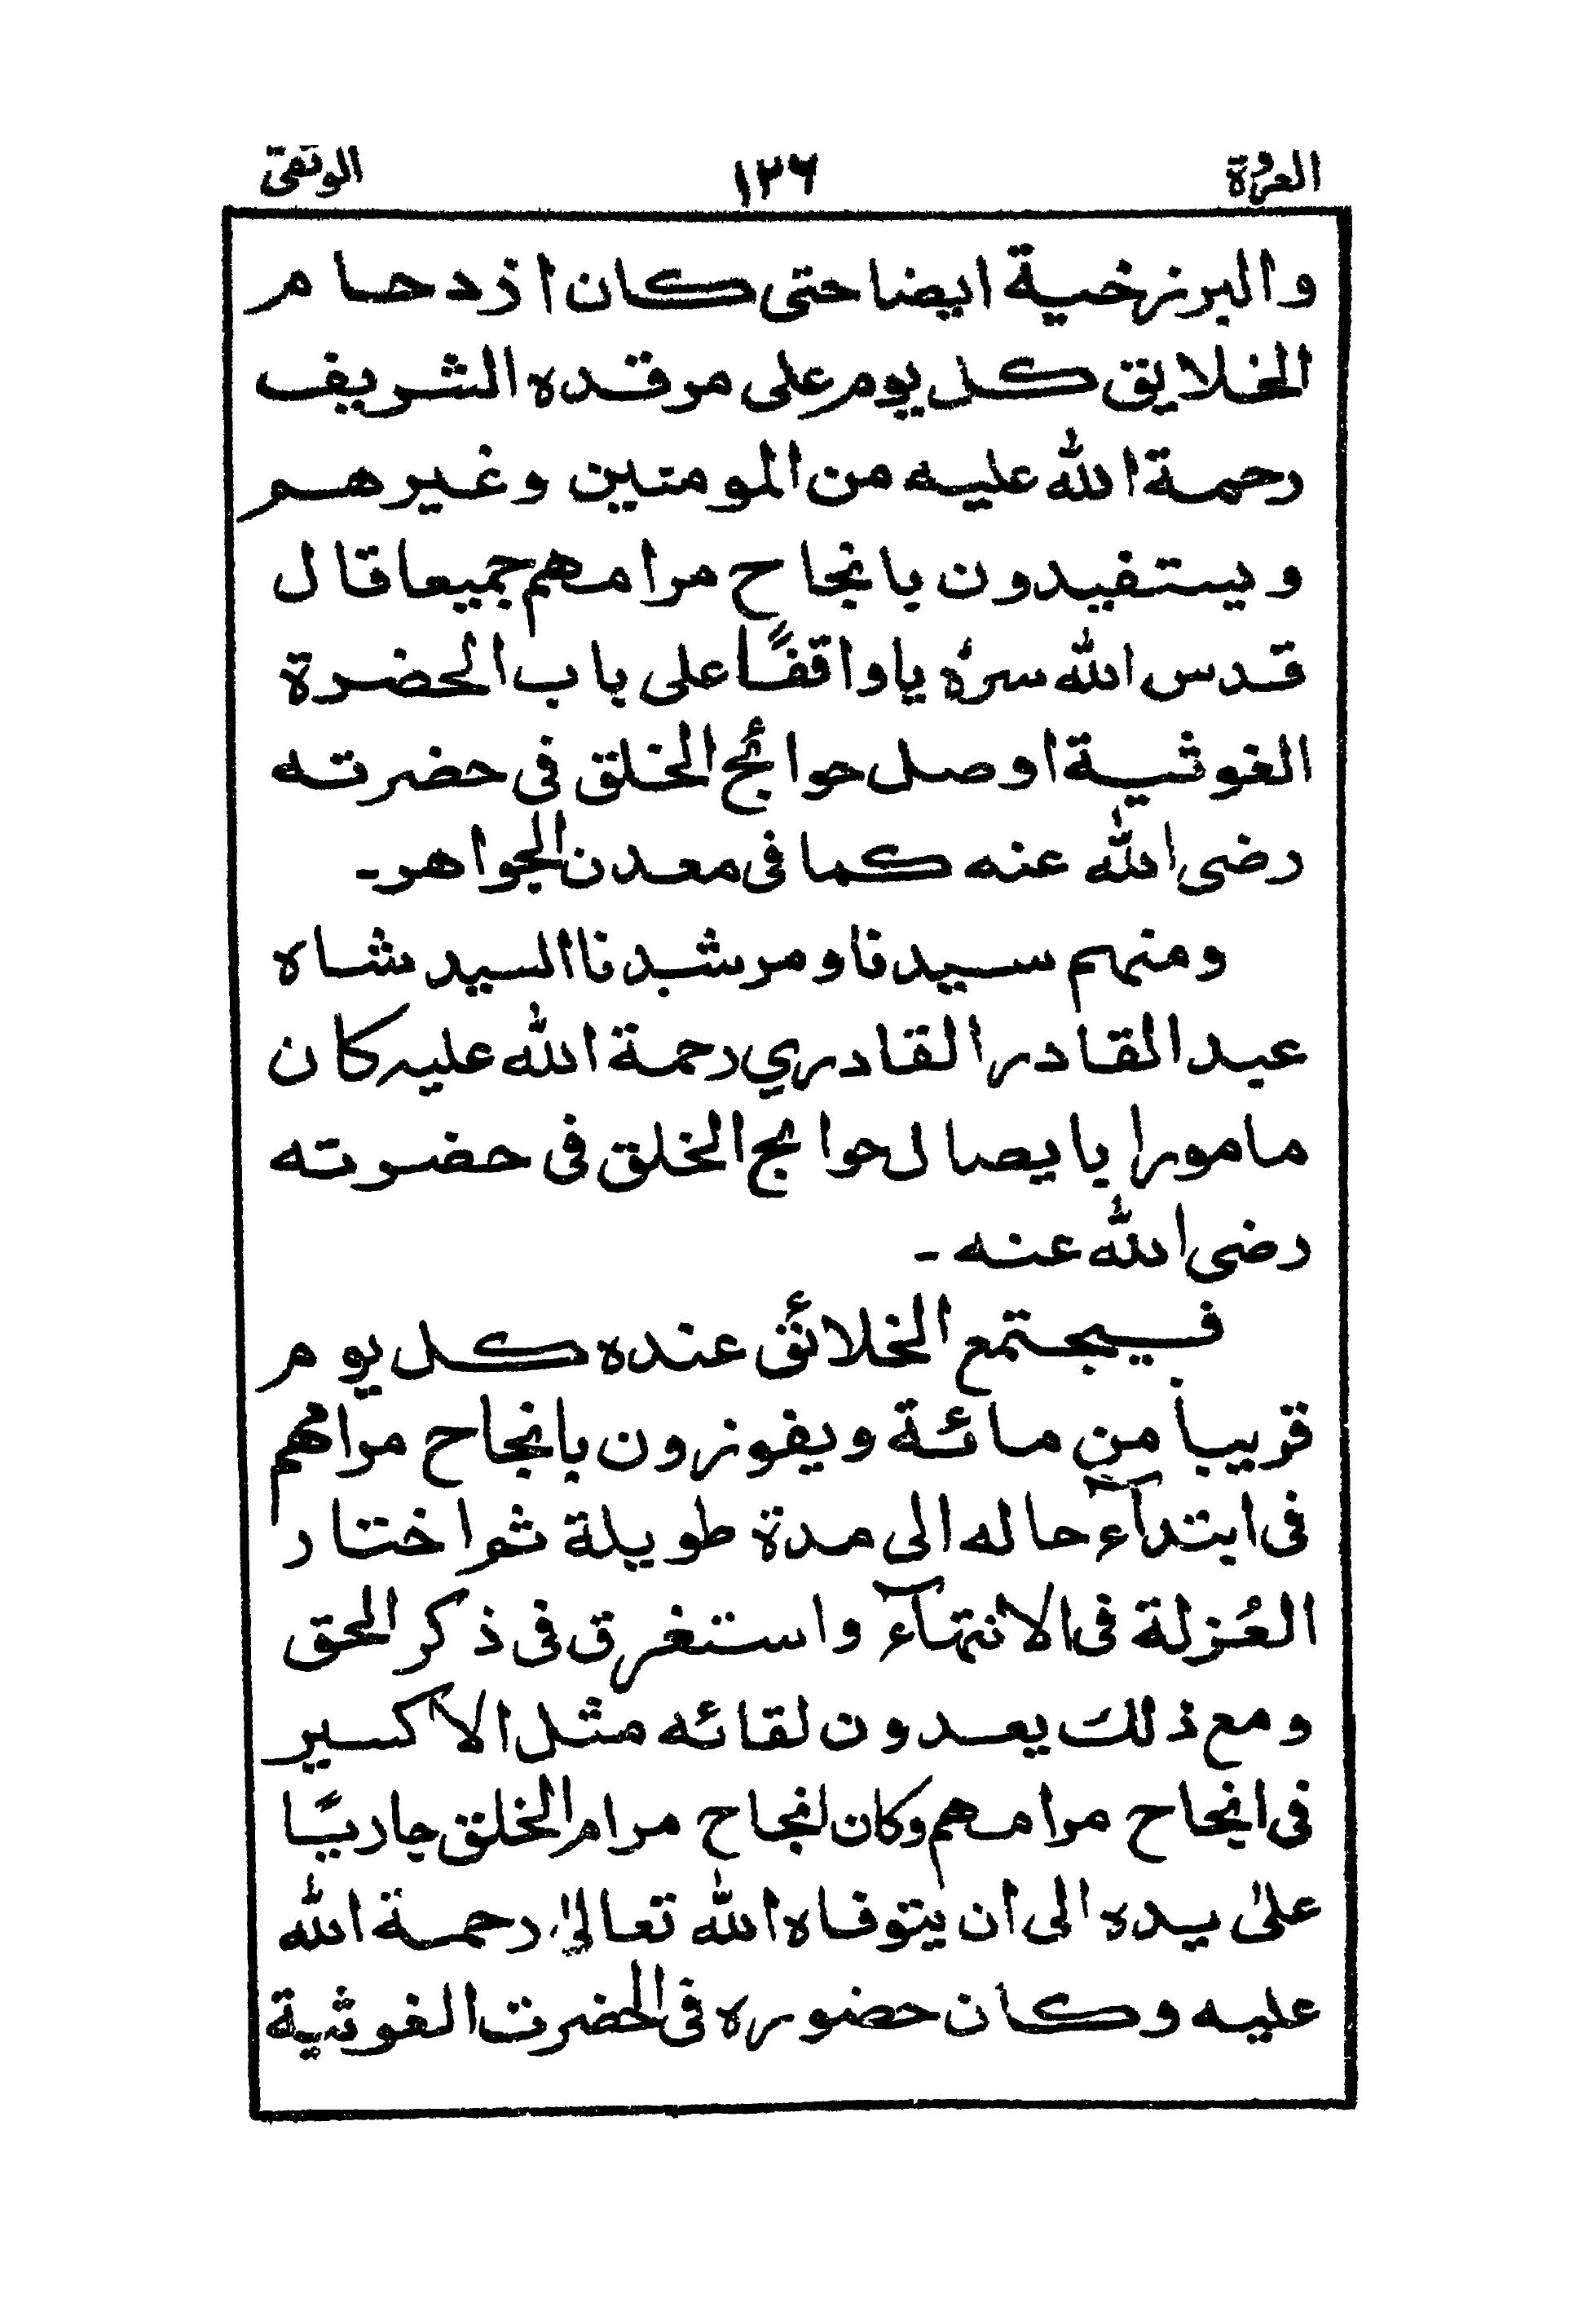 العروة ١٣٦ الوثقى
والبرزخية ايضا حتى كان ازدحام
الخلايق كل يوم على مرقده الشريف
رحمة الله عليه من المومنين وغيرهم
ويستفيدون بانجاح مرامهم جميعا قال
قدس الله سرہٗ ياواقفًا على باب الحضرة
الغوثية اوصل حوائج الخلق فى حضرته
رضى الله عنه كما فى معدن الجواهر۔
ومنهم سيدنا ومرشدنا السيد شاه
عبد القادر القادري رحمة الله عليه كان
مامورا بايصال حوائج الخلق فى حضرته
رضى الله عنه ۔
فيجتمع الخلائق عنده كل يوم
قريبا من مائة ويفوزون بانجاح مرامهم
فى ابتدآء حاله الى مدة طويلة ثم اختار
العُزلة فى الانتهآء واستغرق فى ذكر الحق
ومع ذلك يعدون لقائه مثل الاكسير
فى انجاح مرامهم وكان انجاح مرام الخلق جاريًا
علىٰ يده الى ان يتوفاه الله تعالىٰ، رحمة الله
عليه وكان حضوره فى الحضرت الغوثية